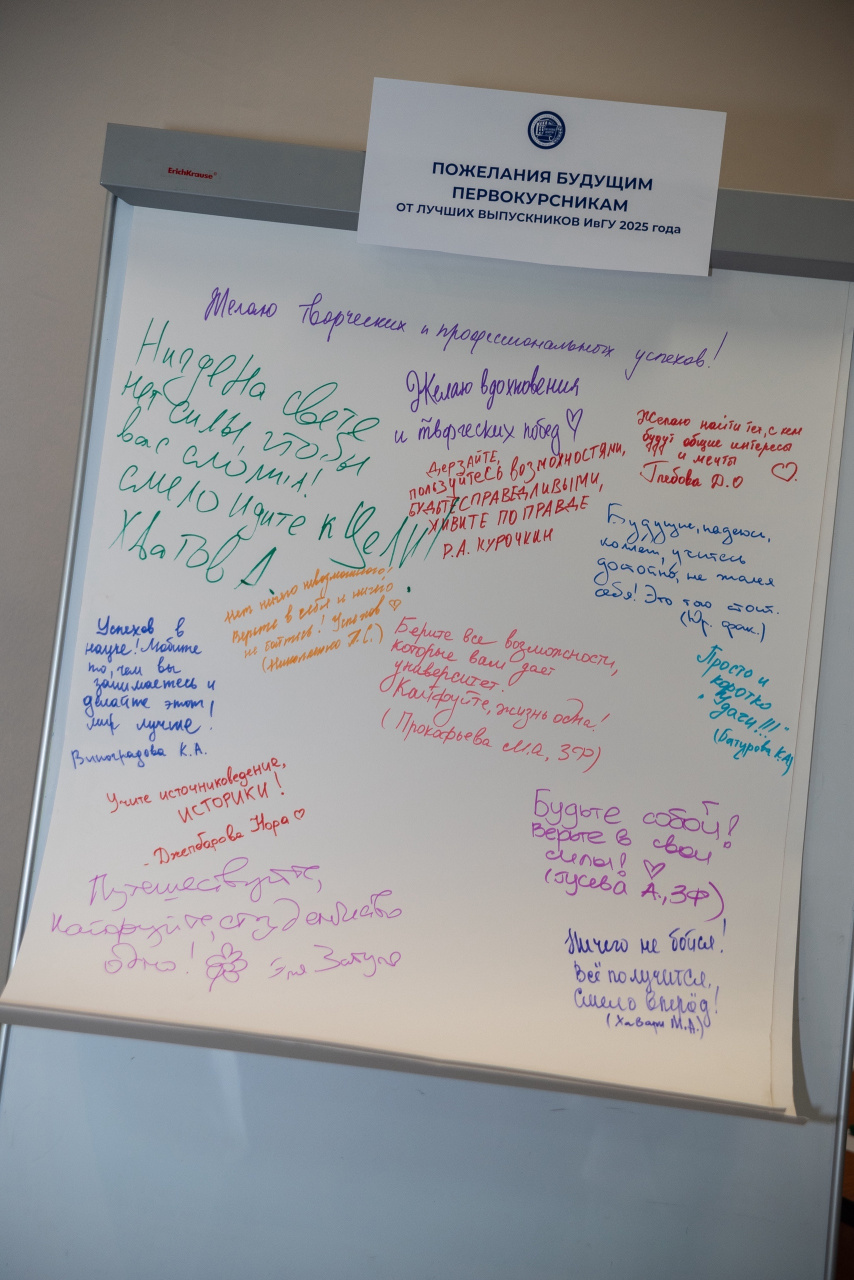 ErichKrause
ПОЖЕЛАНИЯ БУДУЩИМ
ПЕРВОКУРСНИКАМ
ОТ ЛУЧШИХ ВЫПУСКНИКОВ ИвГУ 2025 года
Желаю творческих и профессиональных успехов!
Нигде на свете
нет силы, чтобы
вас сломил!
смело идите к цели!
Хватов А.
Желаю вдохновения
и творческих побед
Дерзайте,
пользуйтесь возможностями,
будьте справедливыми,
живите по правде
Р.А. Курочкин
Желаю найти тех, с кем
будут общие интересы
и мечты
Глебова Д.О
Будущие, надеюсь,
коллеги, учитесь
достойно, не жалея
себя! Это того стоит.
(Юр. фак.)
Нет ничего невозможного!
Верьте в себя и ничего
не бойтесь! Успехов
(Николаенко
Успехов в
науке! Любите
то, чем вы
занимаетесь и
делайте этот
мир лучше!
Виноградова К.А.
Берите все возможности,
которые вам дает
университет.
Кайфуйте, жизнь одна!
(Прокофьева М.А, ЗФ)
Просто и
коротко
"Удачи!!!"
(Батурова К.А)
Учите источниковедение,
ИСТОРИКИ!
- Джепбарова Нора
Будьте собой!
Верьте в свои
силы!
(Гусева А., ЗФ)
Путешествуйте,
кайфуйте, студенчество
одно!
Ничего не бойся!
Всё получится,
Смело вперёд!
М.А.)